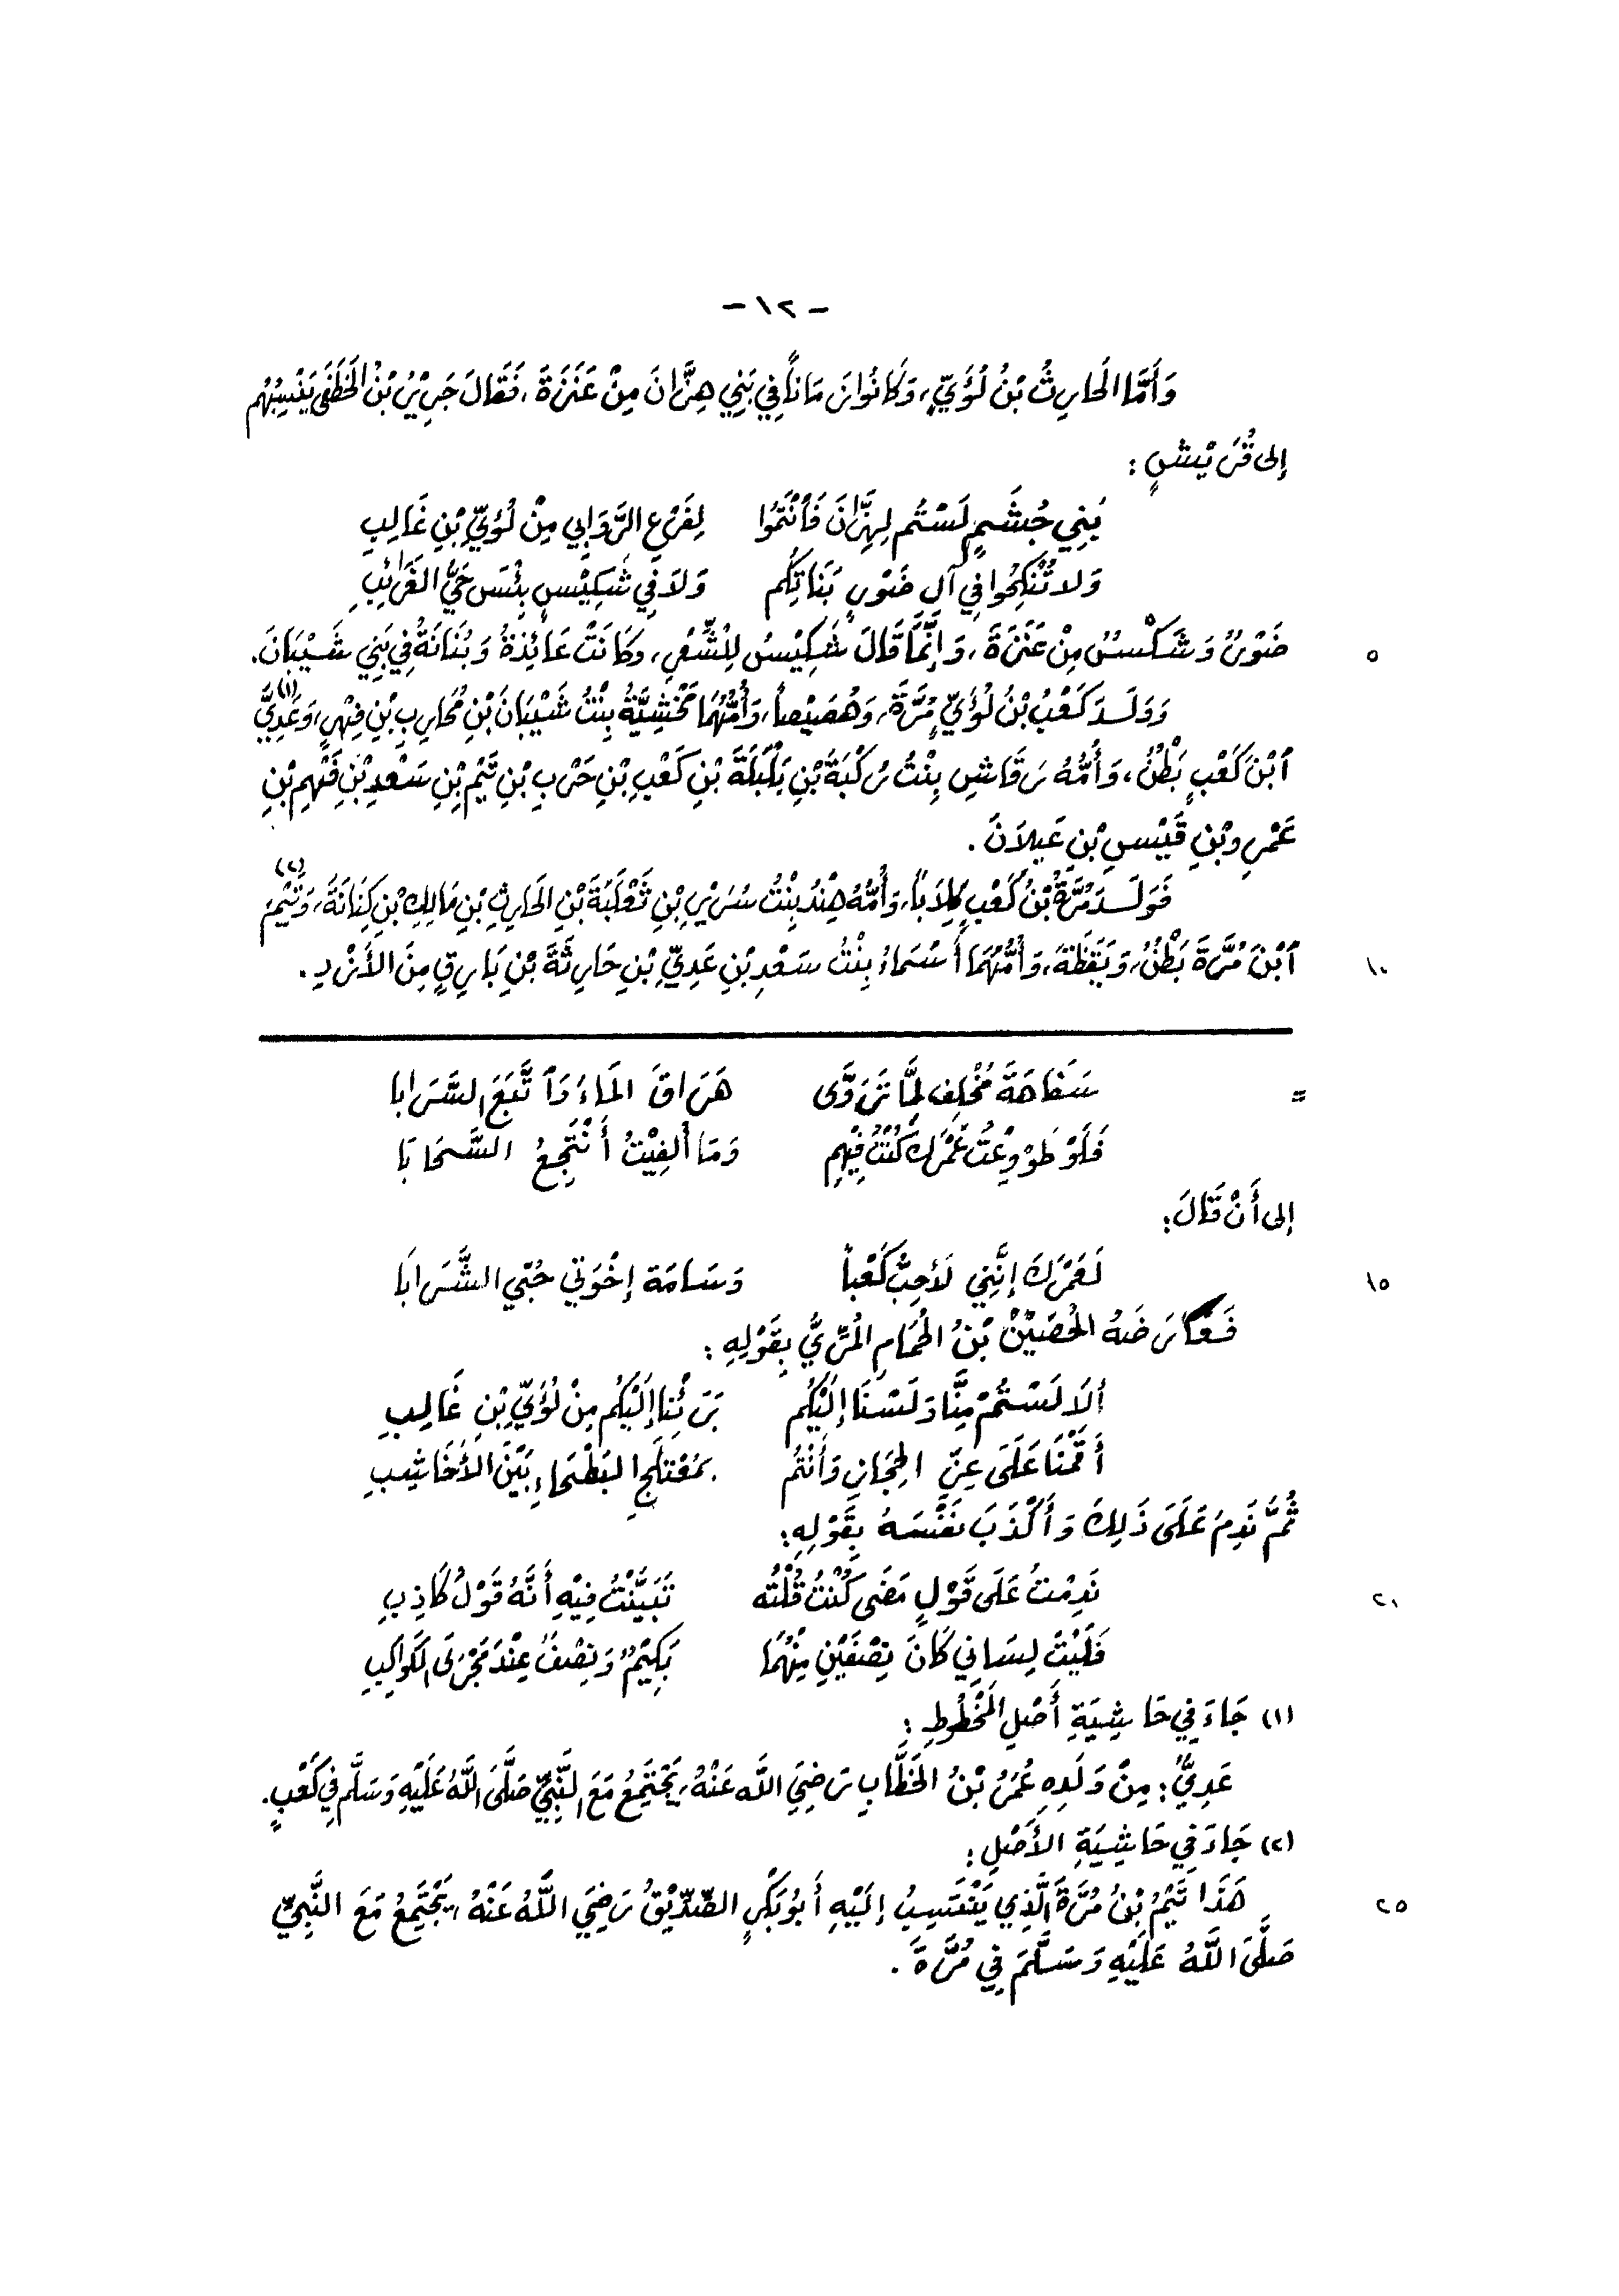 - ١٢ -
وَأَمَّا الحَارِثُ بْنُ لُؤَيٍّ، وَكَانُوا زَمَاناً فِي بَنِي هِزَّانَ مِنْ عَنَزَةَ، فَقَالَ جَرِيْرُ بْنُ الخَطَفَى يَنْسِبُهُم
إلى قُرَيْشٍ :
بَنِي جُشَمٍ لَسْتُم لِهِزَّانَ فَانْتَمُوا لِفَرْعِ الرَّوَابِي مِنْ لُؤَيِّ بْنِ غَالِبِ
وَلا تُنْكِحُوا فِي آلِ ضَوْرٍ بَنَاتِكُم وَلاَ فِي شَكِيْسٍ بِئْسَ حَيُّ الغَرَائِبِ
ضَوْرٌ وَشَكْسٌ مِنْ عَنَزَةَ، وَإِنَّمَا قَالَ شَكِيْسُ لِلْشِّعْرِ، وكَانَتْ عَائِذَةُ وَبُنَانَةُ فِي بَنِي شَيْبَانَ. ٥
وَوَلَدَ كَعْبُ بْنُ لُؤَيٍّ مُرَّةَ، وَهُصَيْصاً، وَأُمُّهُمَا مَخْشِيَّةُ بِنْتُ شَيْبَانَ بْنِ مُحَارِبِ بْنِ فِهْرٍ، وَعَدِيَّ (١)
ٱبْنَ كَعْبٍ بَطْنٌ، وَأُمُّهُ رَقَاشِ بِنْتُ رُكْبَةَ بْنِ بَلْبَلَةَ بْنِ كَعْبِ بْنِ حَرْبِ بْنِ تَيْمِ بْنِ سَعْدِ بْنِ فَهْمِ بْنِ
عَمْرِو بْنِ قَيْسِ بْنِ عَيلاَنَ .
فَوَلَدَ مُرَّةُ بْنُ كَعْبٍ كِلاَباً، وَأُمُّهُ هِنْدُ بِنْتُ سُرَيْرِ بْنِ ثَعْلَبَةَ بْنِ الحَارِثِ بْنِ مَالِكِ بْنِ كِنَانَةَ، وَتَيْمَ (٢)
ٱبْنَ مُرَّةَ بَطْنٌ، وَيَقَظَةَ، وَأُمُّهُمَا أَسْمَاءُ بِنْتُ سَعْدِ بْنِ عَدِيِّ بْنِ حَارِثَةَ بْنِ بَارِقٍ مِنَ الأَزْدِ . ١٠
= سَفَاهَةَ مُخْلِفٍ لمَّا تَرَوَّى هَرَاقَ المَاءَ وَٱتَّبَعَ السَّرَابا
فَلَوْ طُوْوِعْتُ عَمْرَكَ كُنْتُ فِيْهِم وَمَا أُلفِيْتُ أَنْتَجِعُ السَّحَابَا
إلى أَنْ قَالَ:
لَعَمْرُكَ إنَّنِي لَأُحِبُّ كَعْباً وَسَامَة إخْوَتِي حُبِّي الشَّرَابَا ١٥
فَعَارَضَهُ الحُصَيْنُ بْنُ الحُمَامِ المُرِّيُّ بِقَوْلِهِ :
ألاَ لَسْتُمْ مِنَّا وَلَسْنَا إلَيْكُم بَرَئْنا إلَيْكُم مِنْ لُؤَيِّ بْنِ غَالِبِ
أَقَمْنَا عَلَى عِزِّ الحِجَازِ وَأَنْتُم بِمُعْتَلَجِ البَطْحَاءِ بَيْنَ الأَخَاشِبِ
ثُمَّ نَدِمَ عَلَى ذَلِكَ وَأَكْذَبَ نَفْسَهُ بِقَوْلِهِ:
نَدِمْتُ عَلَى قَوْلٍ مَضَى كُنْتُ قُلْتُه تَبَيَّنْتُ فِيْهِ أَنَّهُ قَوْلُ كَاذِبِ ٢١
فَلَيْتَ لِسَانِي كَانَ نِصْفَيْنِ مِنْهُمَا بَكِيْمٌ وَنِصْفٌ عِنْدَ مَجْرَى الكَوَاكِبِ
(١) جَاءَ فِي حَاشِيَةِ أَصْلِ المَخْطُوطِ :
عَدِيُّ: مِنْ وَلَدِهِ عُمَرُ بْنُ الخَطَّابِ رَضِيَ اللَّه عَنْهُ، يَجْتَمِعُ مَعَ النَّبِيِّ صَلَّى اللَّهُ عَلَيْهِ وَسَلَّم فِي كَعْبٍ.
(٢) جَاءَ فِي حَاشِيَةِ الأَصْلِ :
هَذَا تَيْمُ بْنُ مُرَّةَ الَّذِي يَنْتَسِبُ إلَيْهِ أَبُو بَكْرٍ الصِّدِّيْقُ رَضِيَ اللَّهُ عَنْهُ، يَجْتَمِعُ مَعَ النَّبِيِّ ٢٥
صَلَّى اللَّهُ عَلَيْهِ وَسَلَّمَ فِي مُرَّةَ .